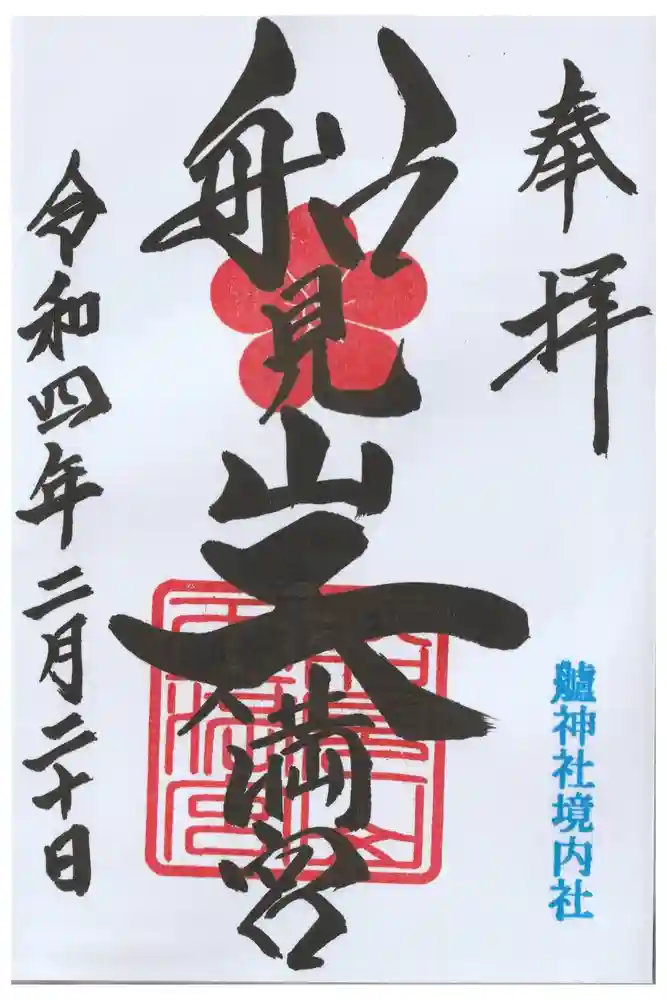 奉拝
艫神社境内社
船見山天満宮
令和四年二月二十日